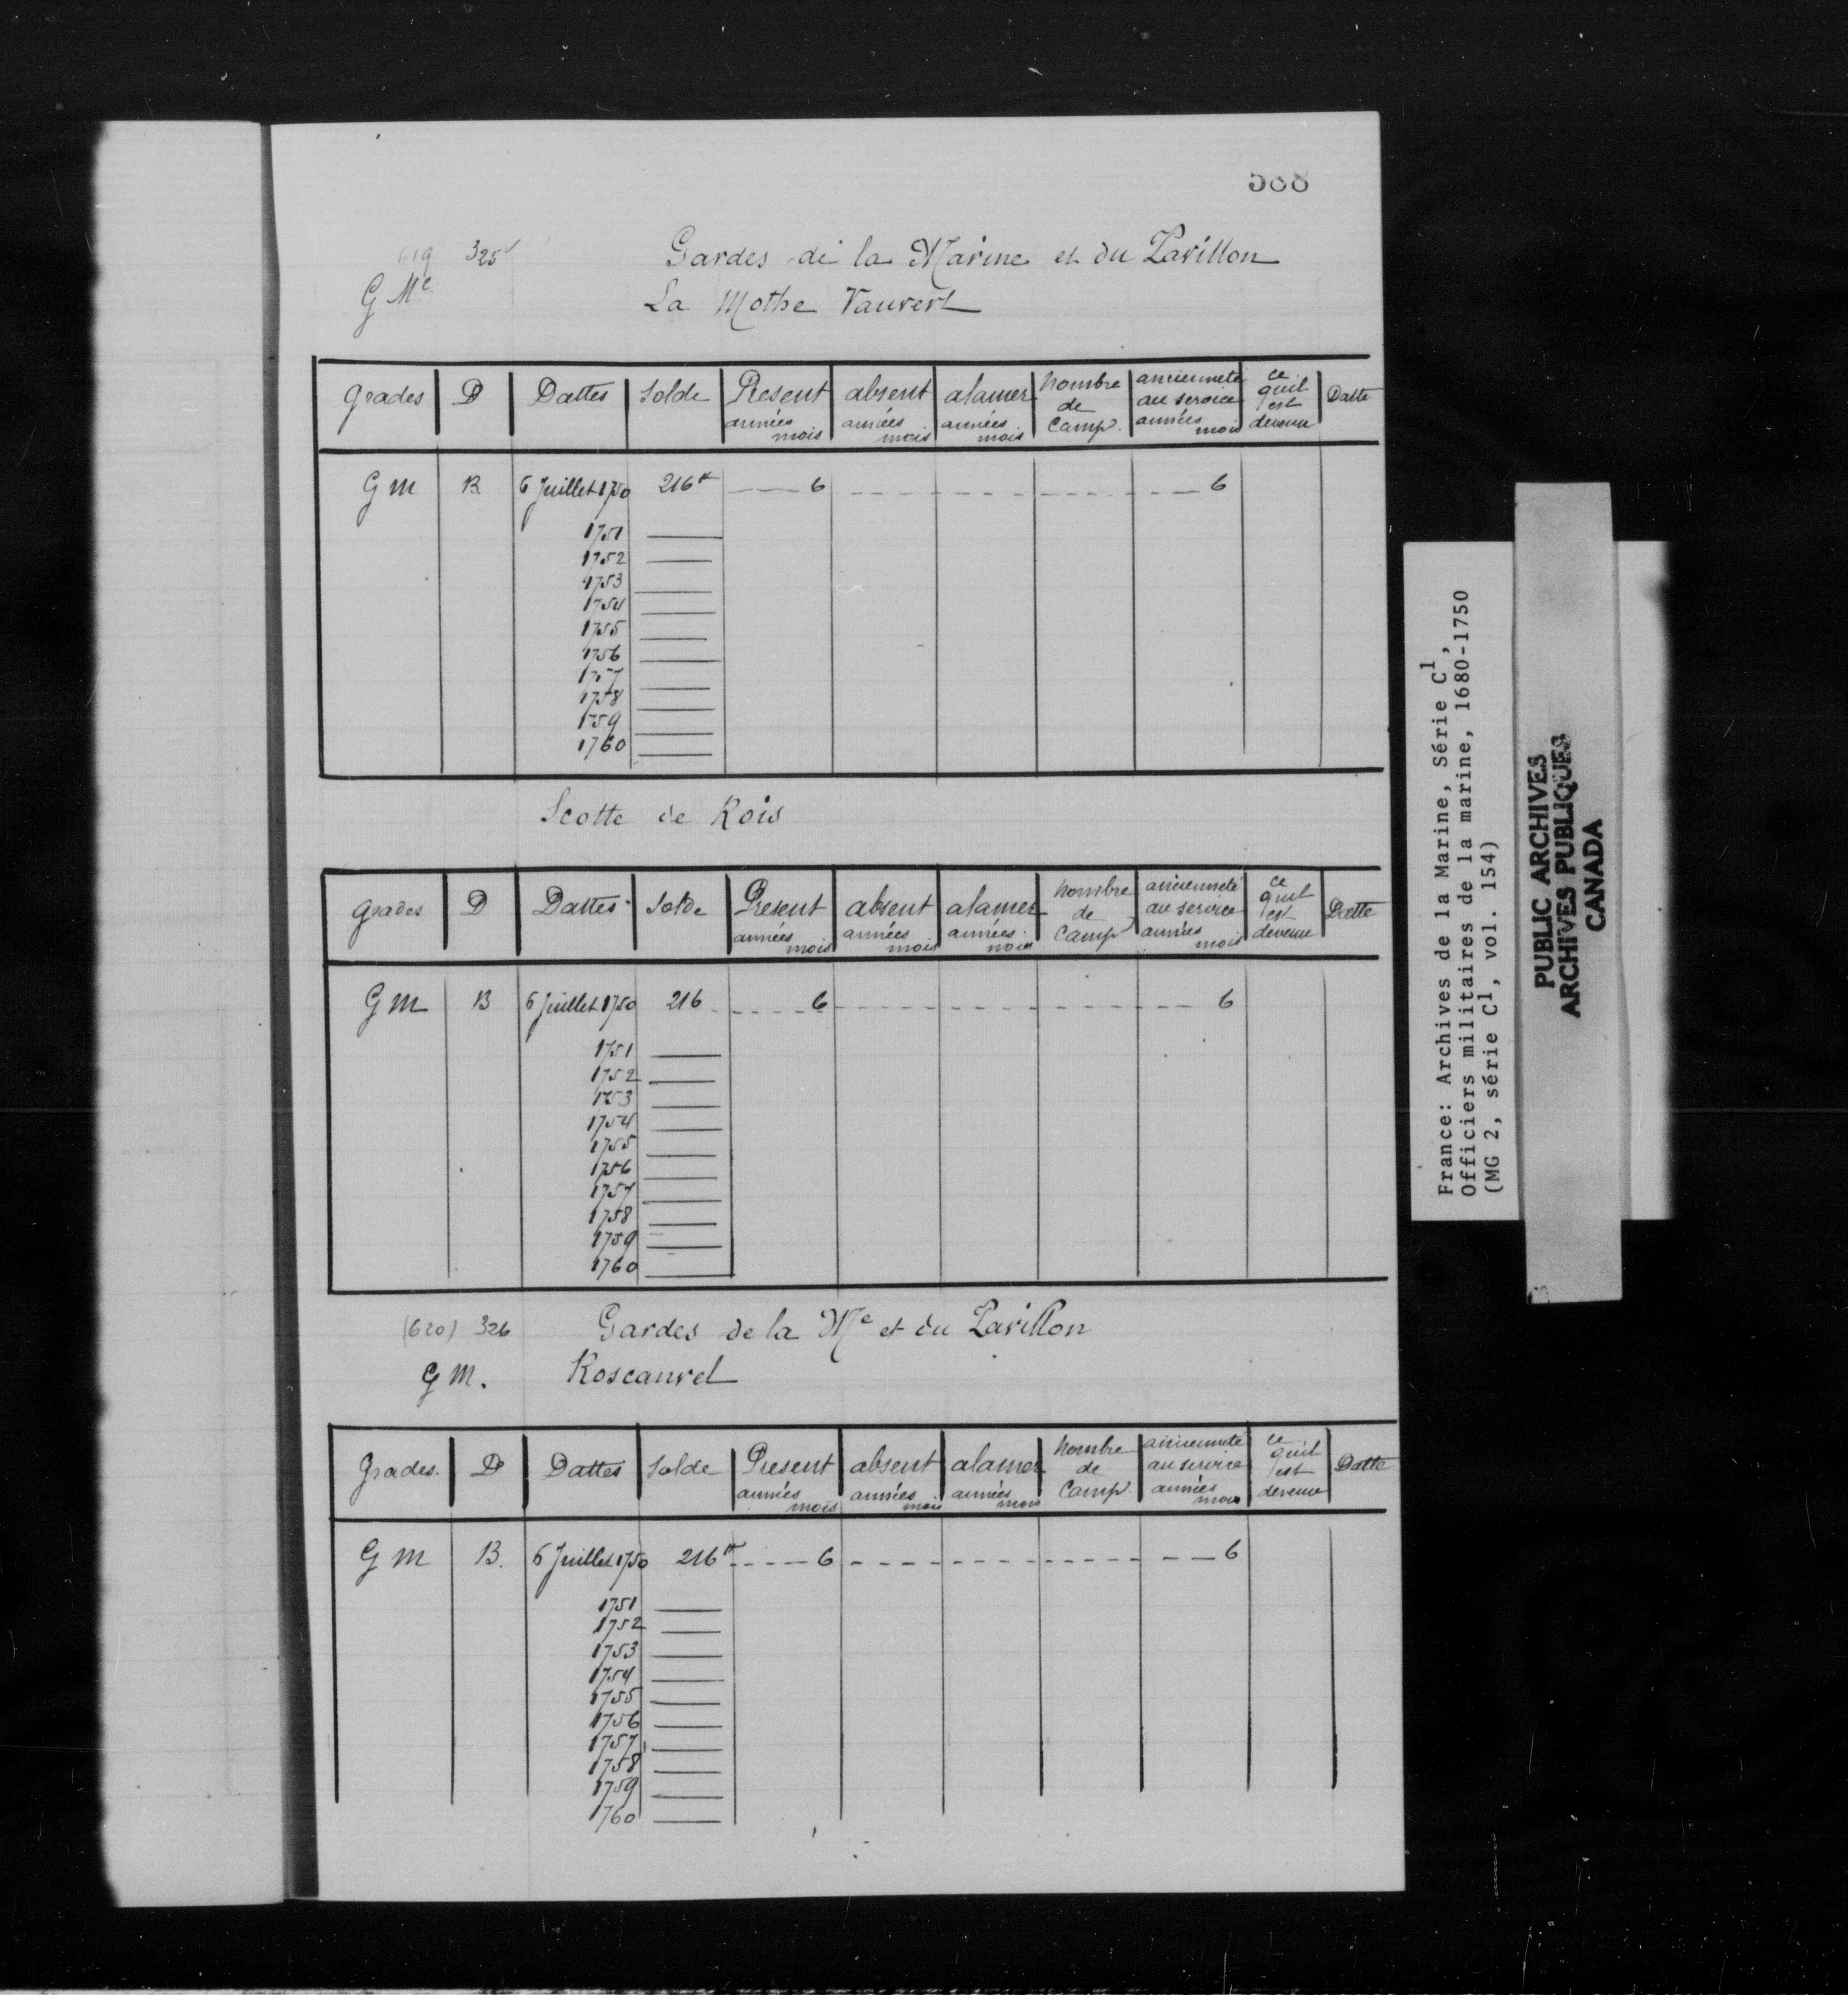 588
619 325 Gardes de la Marine et du Pavillon
G Me La Mothe Vauvert
grades D Dattes Solde Present absent alamer nombre de Camp. ancienneté au service ce quil est devenu Datte
années mois années mois années mois années mois
G M B 6 Juillet 1750 216# 6 6
1751
1752
1753
1754
1755
1756
1757
1758
1759
1760
Scotte de Rois
grades D Dattes Solde Present absent alamer nombre de Camp ancienneté au service ce quil est devenu Datte
années mois années mois années mois années mois
G M B 6 Juillet 1750 216 6 6
1751
1752
1753
1754
1755
1756
1757
1758
1759
1760
(620) 326 Gardes de la Me et du Pavillon
G M. Roscanvel
Grades. D Dattes Solde Present absent alamer nombre de Camp. ancienneté au service ce quil est devenu Datte
années mois années mois années mois années mois
G M B. 6 Juillet 1750 216# 6 6
1751
1752
1753
1754
1755
1756
1757
1758
1759
1760
France: Archives de la Marine, Série C1,
Officiers militaires de la marine, 1680-1750
(MG 2, série C1, vol. 154)
PUBLIC ARCHIVES
ARCHIVES PUBLIQUES
CANADA